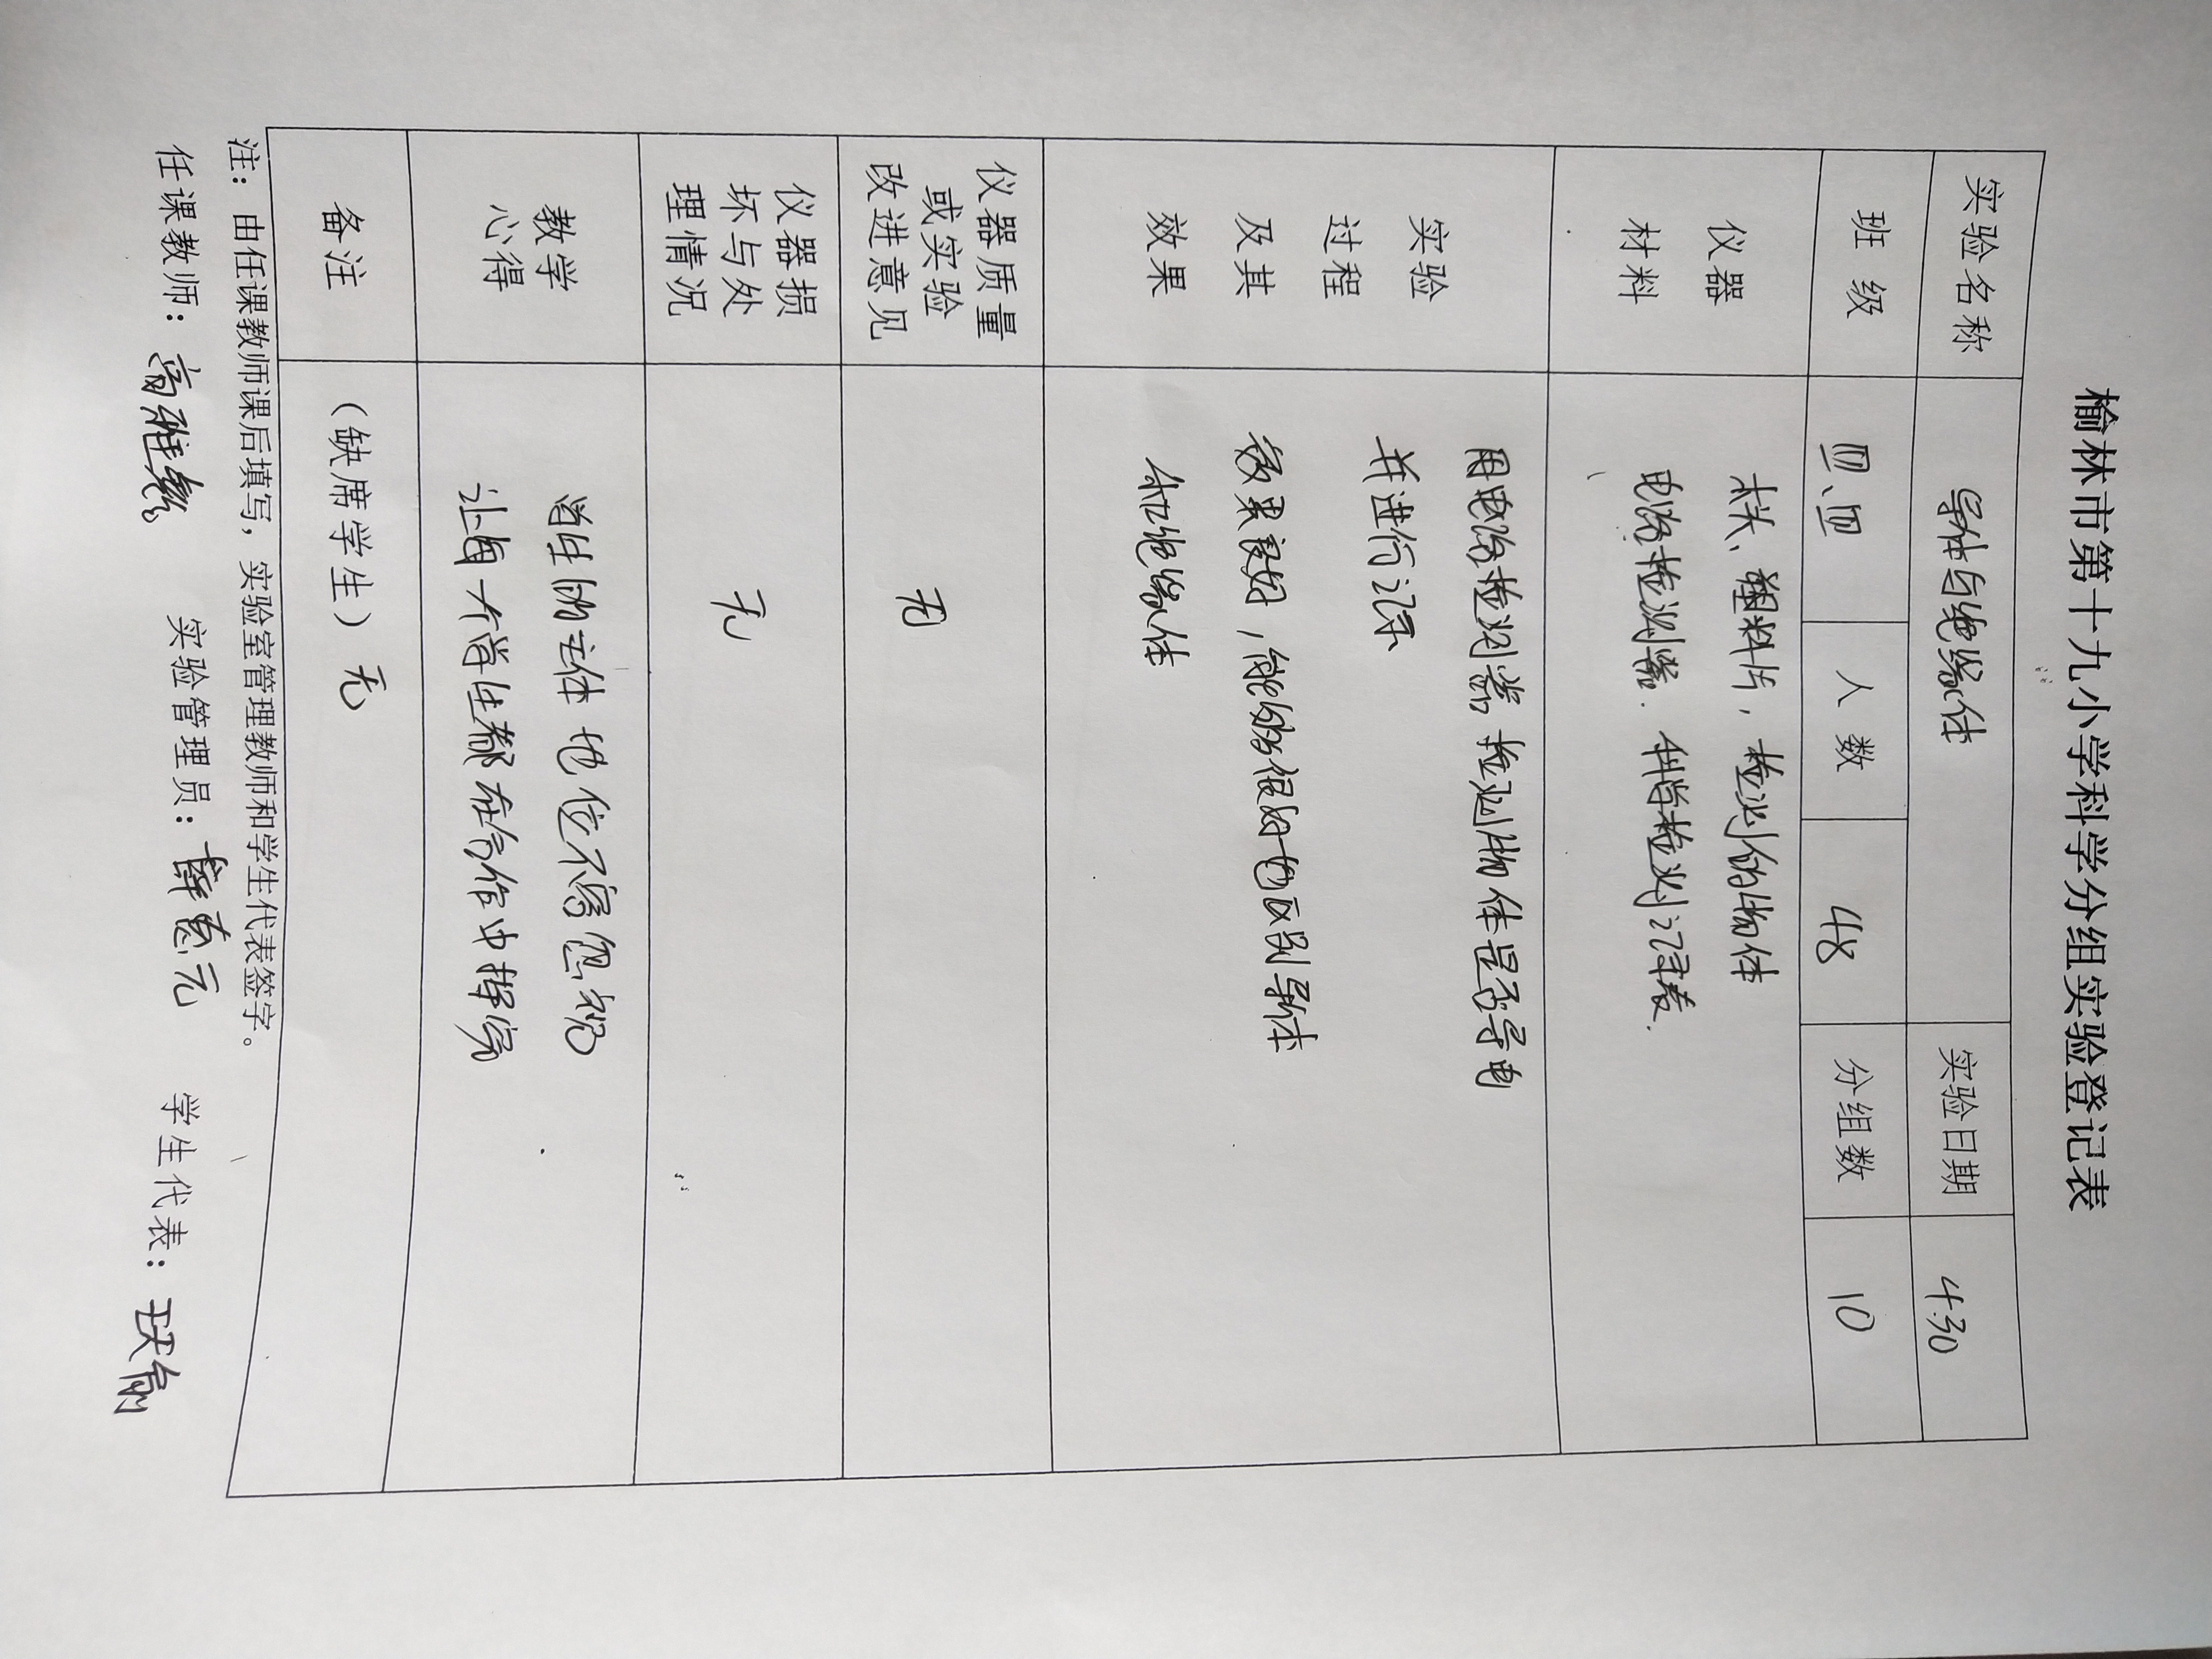 榆林市第十九小学科学分组实验登记表
实验名称 导体与绝缘体 实验日期 4.30
班 级 四、四 人 数 48 分组数 10
仪器 木头、塑料片，检测的物体
材料 电路检测器. 科学检测记录表.
实验 用电路检测器检测物体是否导电
过程 并进行记录
及其 效果较好，能够很好地区别导体
效果 和绝缘体
仪器质量
或实验 无
改进意见
仪器损
坏与处 无
理情况
教学 学生的主体地位不容忽视
心得 让每个学生都在合作中探究
备注 （缺席学生）无
注：由任课教师课后填写，实验室管理教师和学生代表签字。
任课教师：高雅 实验管理员：薛 元 学生代表：